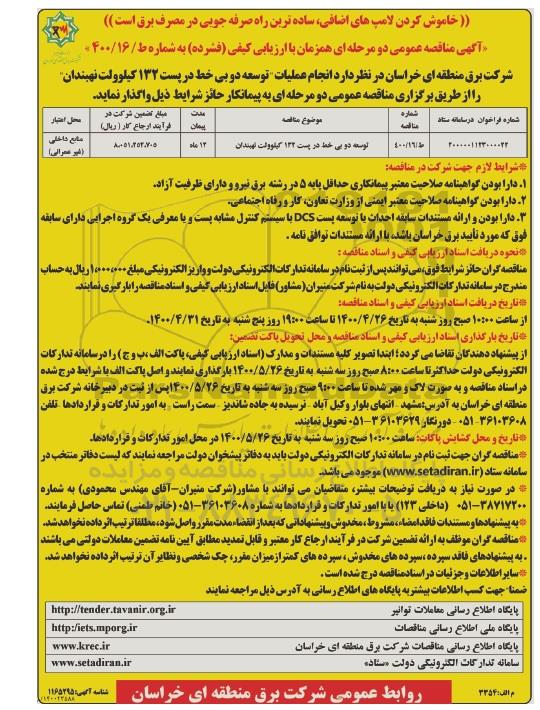 (( خاموش کردن لامپ های اضافی، ساده ترین راه صرفه جویی در مصرف برق است ))
«آگهی مناقصه عمومی دو مرحله ای همزمان با ارزیابی کیفی (فشرده) به شماره ط/ ۴۰۰/۱۶ »
شرکت برق منطقه ای خراسان در نظر دارد انجام عملیات "توسعه دو بی خط در پست ۱۳۲ کیلوولت نهبندان"
را از طریق برگزاری مناقصه عمومی دو مرحله ای به پیمانکار حائز شرایط ذیل واگذار نماید.
شماره فراخوان در سامانه ستاد شماره مناقصه موضوع مناقصه مدت پیمان مبلغ تضمین شرکت در فرآیند ارجاع کار ( ریال) محل اعتبار
ط/۴۰۰/۱۶ توسعه دو بی خط در پست ۱۳۲ کیلوولت نهبندان ۱۲ ماه ۸،۰۵۱،۲۵۲،۷۰۵ منابع داخلی (غیر عمرانی)
*شرایط لازم جهت شرکت در مناقصه:
۱. دارا بودن گواهینامه صلاحیت معتبر پیمانکاری حداقل پایه ۵ در رشته برق نیرو و دارای ظرفیت آزاد.
۲. دارا بودن گواهینامه صلاحیت معتبر ایمنی از وزارت تعاون، کار و رفاه اجتماعی.
۳. دارا بودن و ارائه مستندات سابقه احداث یا توسعه پست DCS با سیستم کنترل مشابه پست و یا معرفی یک گروه اجرایی دارای سابقه
فوق که مورد تأیید برق خراسان باشد، با ارائه مستندات توافق نامه .
*نحوه دریافت اسناد ارزیابی کیفی و اسناد مناقصه :
مناقصه گران حائز شرایط فوق، می توانند پس از ثبت نام در سامانه تدارکات الکترونیکی دولت و واریز الکترونیکی مبلغ ۱،۰۰۰،۰۰۰ ریال به حساب
مندرج در سامانه تدارکات الکترونیکی دولت به نام شرکت منیران (مشاور) فایل اسناد ارزیابی کیفی و اسناد مناقصه را بارگیری نمایند.
*تاریخ دریافت اسناد ارزیابی کیفی و اسناد مناقصه:
از ساعت ۱۰:۰۰ صبح روز شنبه به تاریخ ۱۴۰۰/۴/۲۶ تا ساعت ۱۹:۰۰ روز پنج شنبه به تاریخ ۱۴۰۰/۴/۳۱.
*تاریخ بارگذاری اسناد ارزیابی کیفی و اسناد مناقصه و محل تحویل پاکت تضمین:
از پیشنهاد دهندگان تقاضا می گردد؛ ابتدا تصویر کلیه مستندات و مدارک (اسناد ارزیابی کیفی، پاکت الف، ب و ج ) را در سامانه تدارکات
الکترونیکی دولت حداکثر تا ساعت ۸:۰۰ صبح روز سه شنبه به تاریخ ۱۴۰۰/۵/۲۶ بارگذاری نمایند و اصل پاکت الف با شرایط درج شده
در اسناد مناقصه و به صورت لاک و مهر شده تا ساعت ۹:۰۰ صبح روز سه شنبه به تاریخ ۱۴۰۰/۵/۲۶ پس از ثبت در دبیرخانه شرکت برق
منطقه ای خراسان به آدرس:مشهد - انتهای بلوار وکیل آباد - نرسیده به جاده شاندیز - سمت راست - به امور تدارکات و قراردادها - تلفن
۰۵۱-۳۶۱۰۳۶۰۸ - دورنگار ۳۶۱۰۳۶۲۹-۰۵۱ تحویل نمایند.
*تاریخ و محل گشایش پاکات: ساعت ۱۰:۰۰ صبح روز سه شنبه به تاریخ ۱۴۰۰/۵/۲۶ در محل امور تدارکات و قراردادها.
*مناقصه گران جهت ثبت نام در سامانه تدارکات الکترونیکی دولت باید به دفاتر پیشخوان دولت مراجعه نمایند که لیست دفاتر منتخب در
سامانه ستاد (www.setadiran.ir) موجود می باشد.
* در صورت نیاز به دریافت توضیحات بیشتر، متقاضیان می توانند با مشاور (شرکت منیران-آقای مهندس محمودی) به شماره
۰۵۱-۳۸۷۱۷۲۰۰ (داخلی ۵۲۳) یا با امور تدارکات و قراردادها به شماره ۳۶۱۰۳۶۰۸-۰۵۱ (خانم طیبی) تماس حاصل فرمایند.
*به پیشنهادها و مستندات فاقد امضاء، مشروط، مخدوش و پیشنهاداتی که بعد از انقضاء مدت مقرر واصل شود، مطلقا ترتیب اثر داده نخواهد شد.
*مناقصه گران موظف به ارائه تضمین شرکت در فرآیند ارجاع کار معتبر و قابل تمدید مطابق آیین نامه تضمین معاملات دولتی می باشند
. به پیشنهادهای فاقد سپرده ، سپرده های مخدوش ، سپرده های کمتر از میزان مقرر، چک شخصی و نظایر آن ترتیب اثر داده نخواهد شد.
*سایر اطلاعات و جزئیات در اسناد مناقصه درج شده است .
ضمنا" جهت کسب اطلاعات بیشتر به پایگاه های اطلاع رسانی به آدرس ذیل مراجعه نمایند
پایگاه اطلاع رسانی معاملات توانیر http://tender.tavanir.org.ir
پایگاه ملی اطلاع رسانی مناقصات http://iets.mporg.ir
پایگاه اطلاع رسانی مناقصات شرکت برق منطقه ای خراسان www.krec.ir
سامانه تدارکات الکترونیکی دولت «ستاد» www.setadiran.ir
م الف: ۳۳۵۴ روابط عمومی شرکت برق منطقه ای خراسان شناسه آگهی: ۱۱۶۵۲۹۵